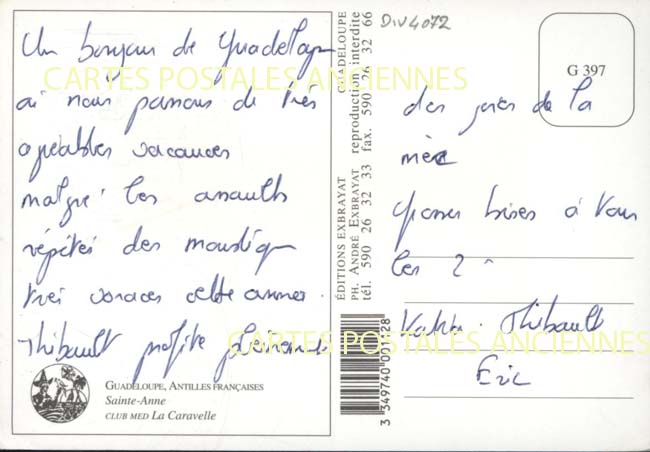 Un bonjour de Guadeloupe
où nous passons de très
agréables vacances
malgré les assauts
répétés des moustiques
très voraces cette année.
Thibault profite pleinement
GUADELOUPE, ANTILLES FRANÇAISES
Sainte-Anne
CLUB MED La Caravelle
ÉDITIONS EXBRAYAT GUADELOUPE
PH. ANDRÉ EXBRAYAT reproduction interdite
tél. 590 26 32 33 fax. 590 26 32 66
3 349740 001328
DIV4072
G 397
des joies de la
mer
Grosses bises à vous
les 2
Thibault
Eric
CARTES POSTALES ANCIENNES
CARTES POSTALES ANCIENNES